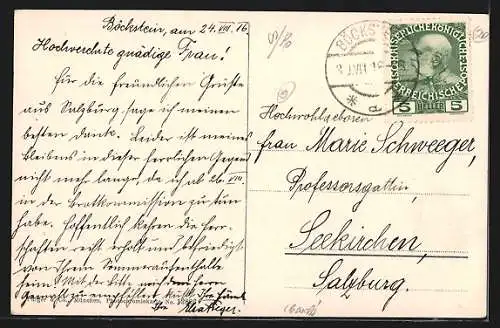 Böckstein, am 24. VII. 16
Hochverehrte gnädige Frau!
Für die freundlichen Grüße
aus Salzburg, sage ich meinen
besten Dank. Leider ist meines
bleibens in dieser herrlichen Gegend
nicht mehr lange, da ich ab 26. VII.
in der Brotkommission zu tun
habe. Hoffentlich kehren die Herr-
schaften recht erholt und befriedigt
von Ihrem Sommeraufenthalte
heim. Mit der Bitte, mich dem Herrn
Gemahl zu empfehlen, küßt Ihre Hand
Ihr
München, No.
BÖCKST
VII. 16
KAISERLICHE KÖNIGLICHE
ÖSTERREICHISCHE
5 HELLER 5
Hochwohlgeboren
Frau Marie Schweeger,
Professorsgattin,
Seekirchen,
Salzburg.